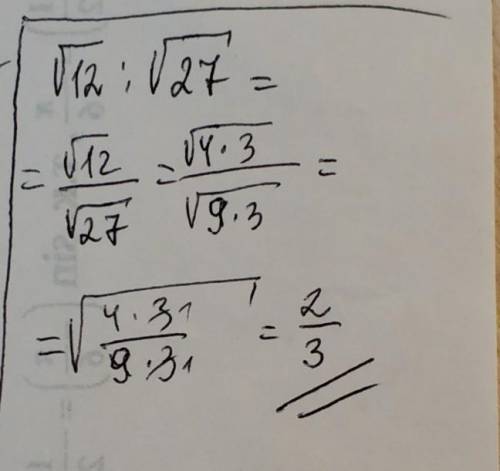 √12 : √27 =
= √12/√27 = √(4·3)/√(9·3) =
= √(4·3 1/9·3 1) = 2/3